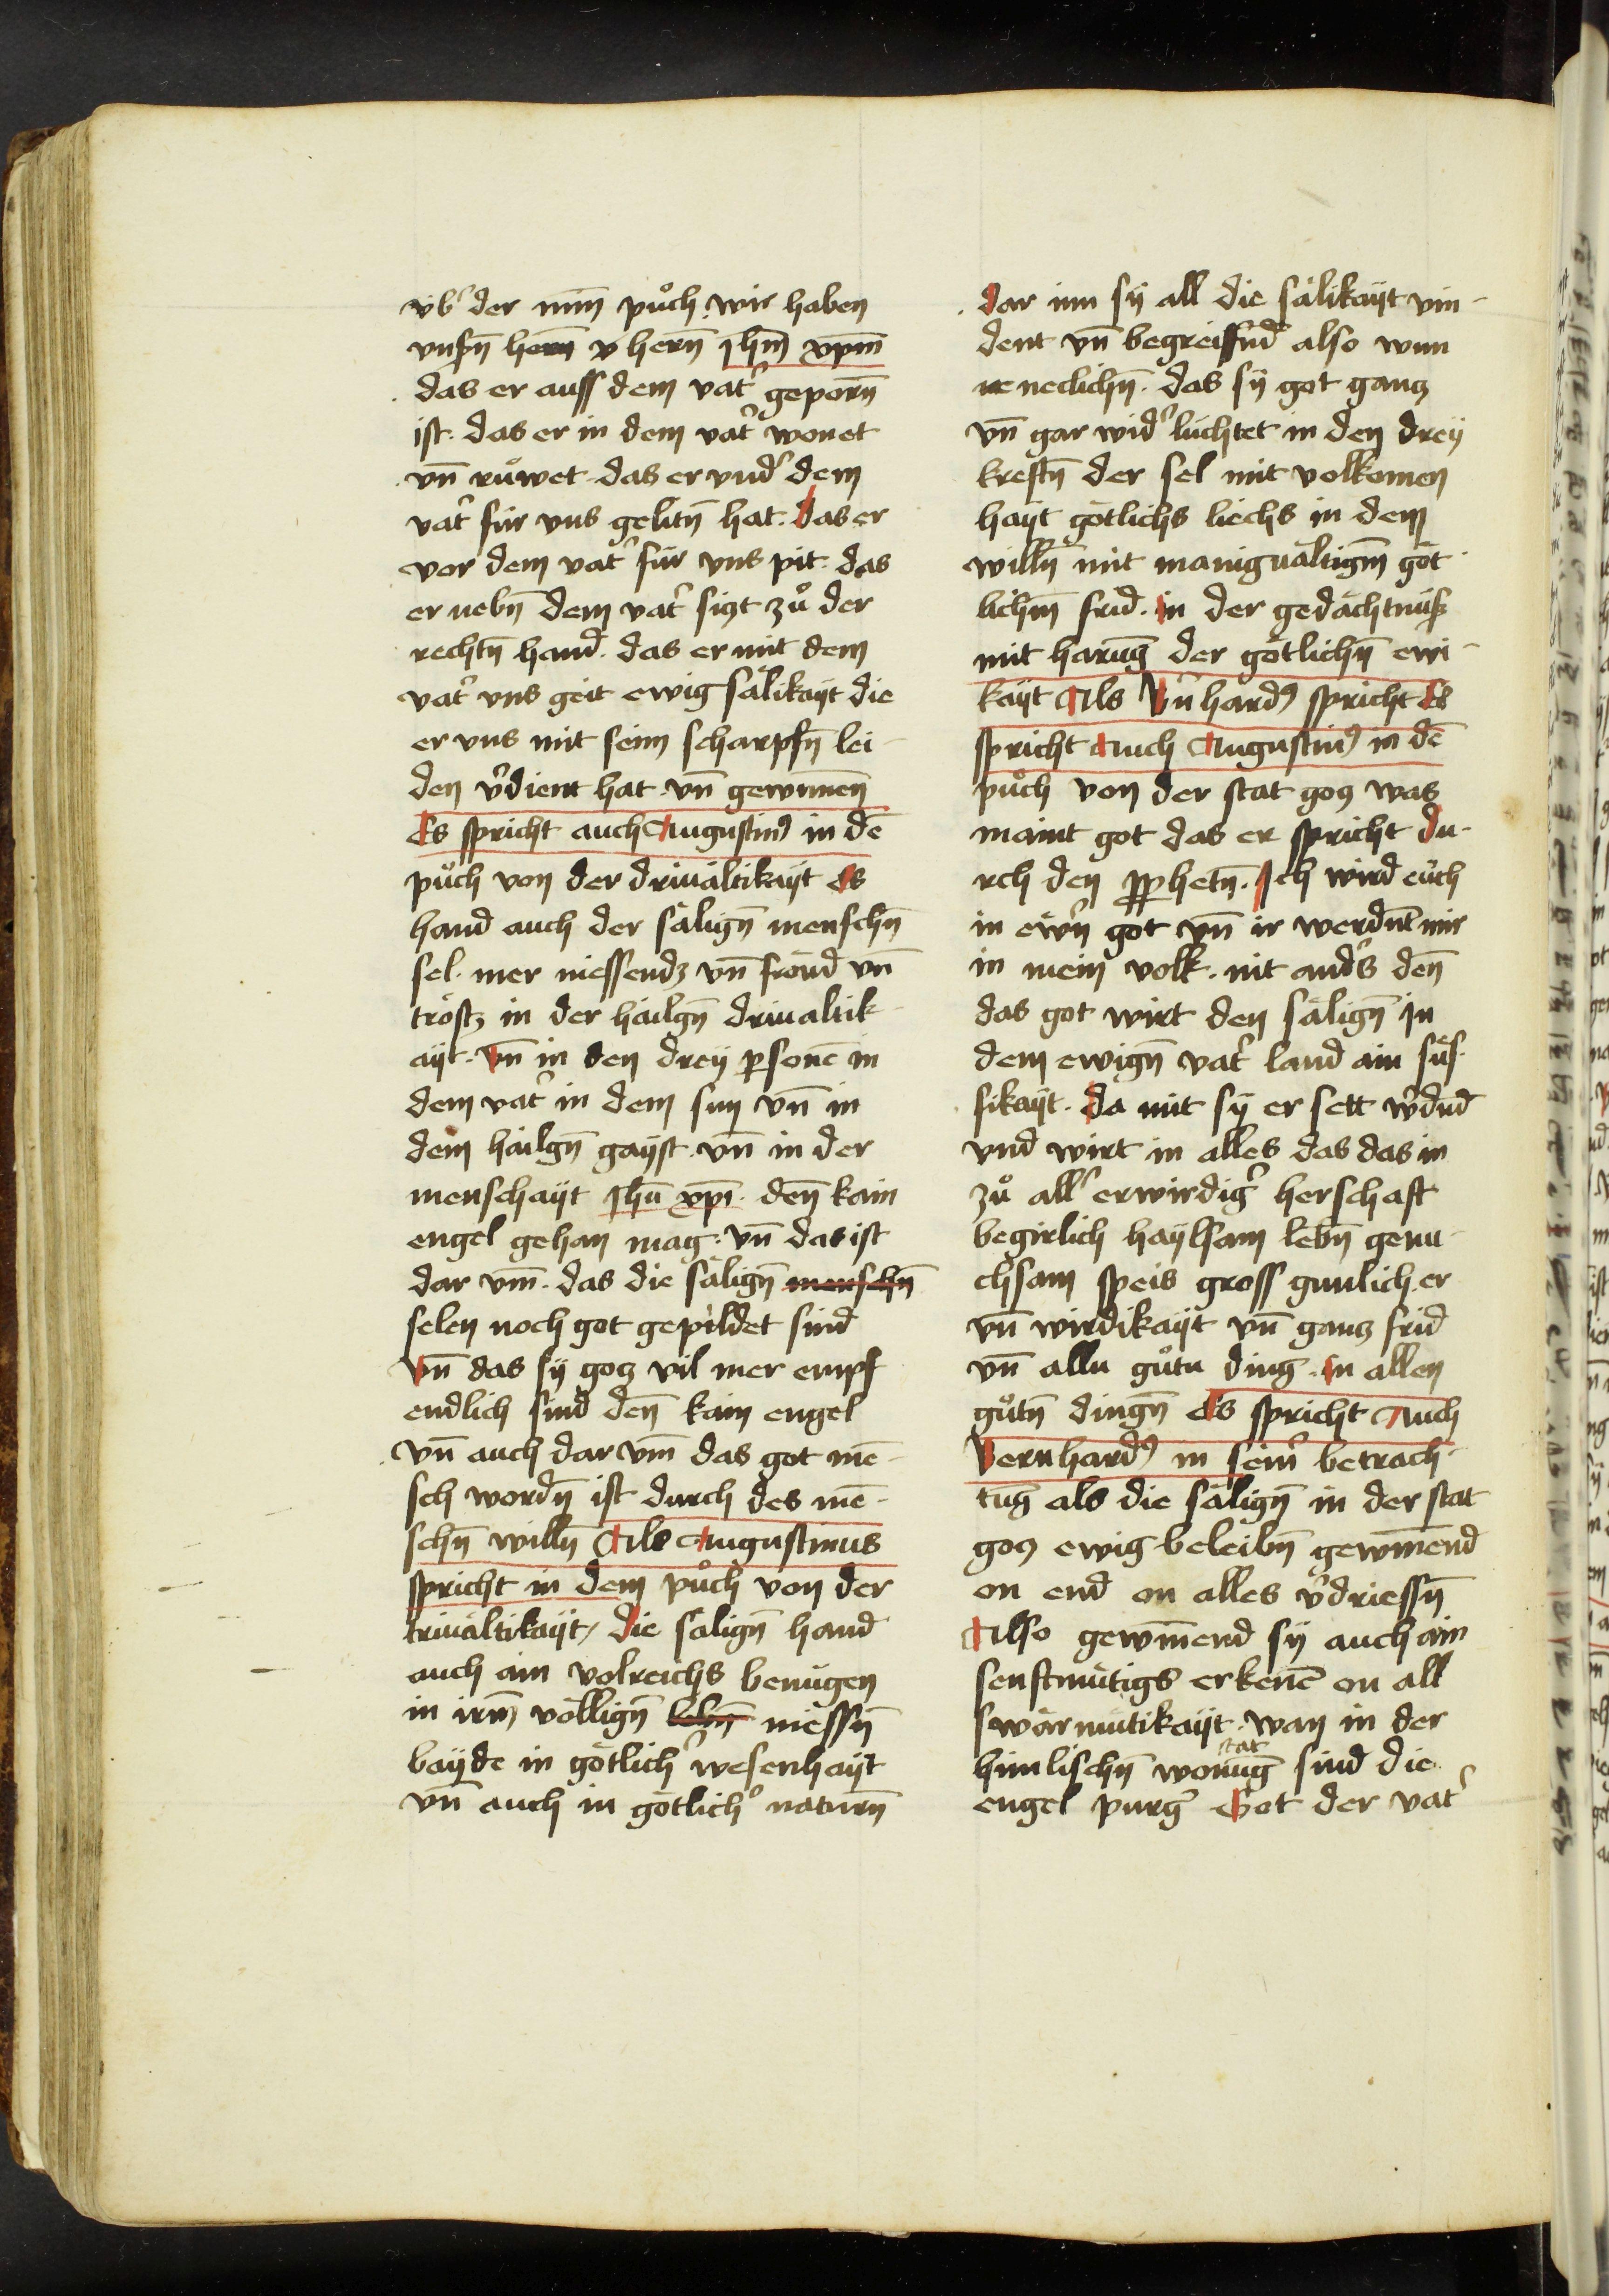 vͤb᷎ der minn puͦch. wir haben
vnsn̄ hern̄ Jhm̄ xpm̄
das er auss dem vat᷎ geporn̄
ist. das er in dem vat᷎ wonet
vn̄ ruͦwet. das er vnd᷎ dem
vat᷎ für vns gelitn̄ hat. das er
vor dem vat᷎ für vns pit. das
er nebn̄ dem vat᷎ sitzt zuͦ der
rechtn̄ hand. das er mit dem
vat᷎ vns geit ewig sälikayt die
er vns mit seim scharpfn̄ lei-
den v᷎dient hat vn̄ gewunnen̄
Es spricht auch Augustin⁹ in dē
puͦch von der driuältikayt Es
hand auch der sälign̄ menschn̄
sel. mer niessendz vn̄ fröud vn̄
tröstz in der hailgn̄ driualtik-
ayt. vn̄ in den drey ꝑsonē in
dem vat᷎ in dem sun vn̄ in
dem hailgn̄ gayst. vn̄ in der
menschayt Jhū xpī. den̄ kain
engel gehan mag. vn̄ das ist
dar vm̄. das die sälign̄ menschn̄
selen noch got gepildet sind
vn̄ das sy gotz vil mer empf
endlich sind den̄ kain engel
vn̄ auch dar vm̄ das got mē-
sch wordn̄ ist durch des mē-
schn̄ willn̄ Als Augustinus
spricht in dem puͦch von der
triuältikayt / die sälign̄ hand
auch ain volreichs benügen
in irm̄ völlign̄ lebn̄ niessn̄
bayde in götlich᷎ wesenhayt
vn̄ auch in götlich᷎ naturn̄
dar inn sy all die sälikayt vin-
dent vn̄ begreiffnd also wun
ne neclichn̄. das sy got gantz
vn̄ gar wid᷎ lüchtet in den drey
kreftn̄ der sel mit volkomen
hayt götlichs liechs in dem
willn̄ mit manigualtigm̄ göt
lichm̄ frid. in der gedächtnüß
mit harung der götlichn̄ ewi-
kayt Als B᷎nhard⁹ spricht Es
spricht Auch Augustin⁹ in dē
puͦch von der stat gotz was
maint got das er spricht du-
rch den ꝓphetn̄. Jch wird eüch
in ewrn̄ got vn̄ ir werdnt mir
in mein volk. nit and᷎s den̄
das got wirt den sälign̄ in
dem ewign̄ vat᷎ land ain süs-
sikayt. da mit sy er sett w᷎dnd
vnd wirt in alles das das in
zuͦ all᷎ erwirdig᷎ herschaft
begirlich haylsam lebn̄ genu-
chsam speis gross gunlich er
vn̄ wirdikayt vn̄ gantz frid
vn̄ allu guͦtu ding. in allen
guͦtn̄ dingn̄ Es spricht Auch
Bernhard⁹ in seim᷎ betrach-
tūg als die sälign̄ in der stat
gotz ewig beleibn̄ gewinnend
on end on alles v᷎driessn̄
Also gewinnend sy auch ain
senftmütigs erkenē on all
swärmütikayt. wan in der
himlischn̄ wonūg stat sind die
engel purg᷎ Got der vat᷎